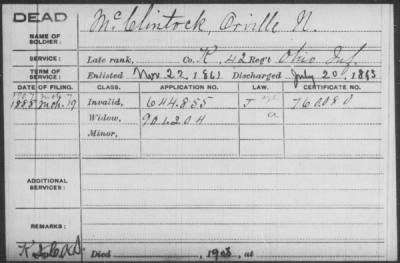 DEAD
NAME OF SOLDIER: McClintock, Orville N.
SERVICE: Late rank, Co. K, 42 Reg't Ohio Inf.
TERM OF SERVICE: Enlisted Nov. 22, 1861 Discharged July 20, 1863
DATE OF FILING. CLASS. APPLICATION NO. LAW. CERTIFICATE NO.
1888 Mch. 19 Invalid, 644.855 J 760080
Widow, 901.204 a
Minor,
ADDITIONAL SERVICES:
REMARKS:
Died 1908, at